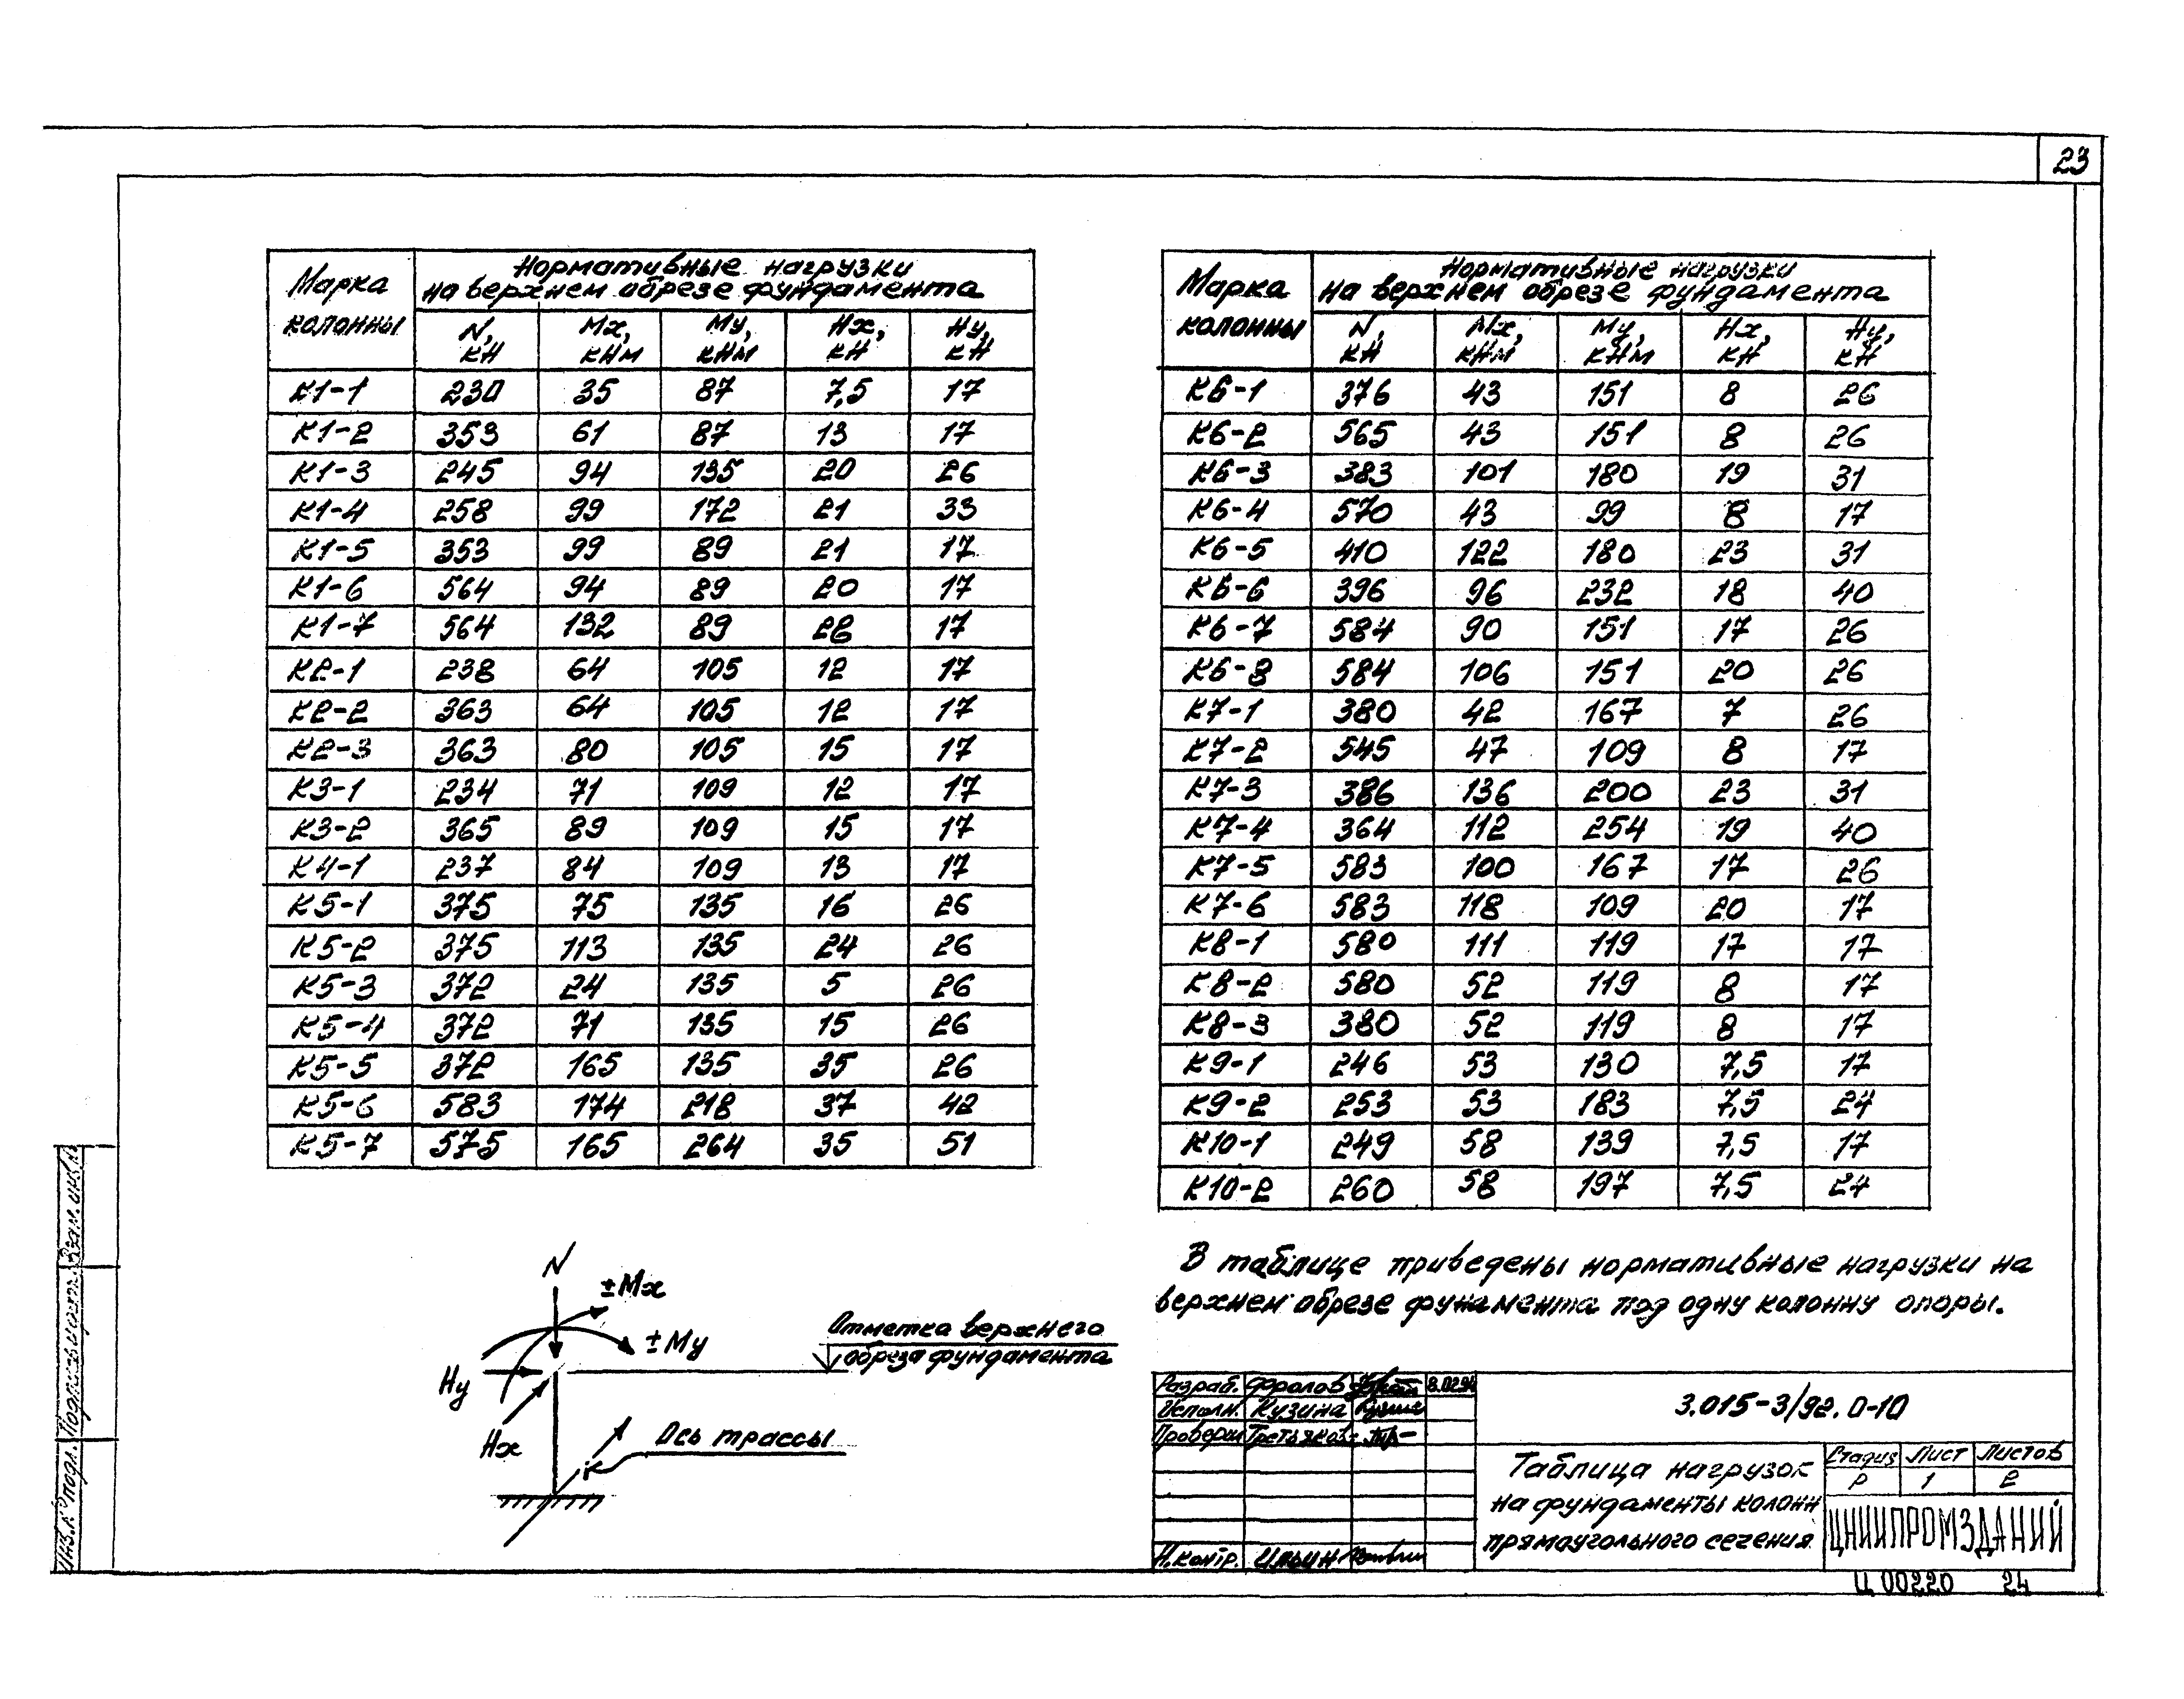 23
Марка колонны | Нормативные нагрузки на верхнем обрезе фундамента
N, кН | Мх, кНм | Му, кНм | Нх, кН | Ну, кН
К1-1 230 35 87 7,5 17
К1-2 353 61 87 13 17
К1-3 245 94 135 20 26
К1-4 258 99 172 21 33
К1-5 353 99 89 21 17
К1-6 564 94 89 20 17
К1-7 564 132 89 28 17
К2-1 238 64 105 12 17
К2-2 363 64 105 12 17
К2-3 363 80 105 15 17
К3-1 234 71 109 12 17
К3-2 365 89 109 15 17
К4-1 237 84 109 13 17
К5-1 375 75 135 16 26
К5-2 375 113 135 24 26
К5-3 372 24 135 5 26
К5-4 372 71 135 15 26
К5-5 372 165 135 35 26
К5-6 583 174 218 37 42
К5-7 575 165 264 35 51
Марка колонны | Нормативные нагрузки на верхнем обрезе фундамента
N, кН | Мх, кНм | Му, кНм | Нх, кН | Ну, кН
К6-1 376 43 151 8 26
К6-2 565 43 151 8 26
К6-3 383 101 180 19 31
К6-4 570 43 99 8 17
К6-5 410 122 180 23 31
К6-6 396 96 232 18 40
К6-7 584 90 151 17 26
К6-8 584 106 151 20 26
К7-1 380 42 167 7 26
К7-2 545 47 109 8 17
К7-3 386 136 200 23 31
К7-4 364 112 254 19 40
К7-5 583 100 167 17 26
К7-6 583 118 109 20 17
К8-1 580 111 119 17 17
К8-2 580 52 119 8 17
К8-3 380 52 119 8 17
К9-1 246 53 130 7,5 17
К9-2 253 53 183 7,5 24
К10-1 249 58 139 7,5 17
К10-2 260 58 197 7,5 24
N
±Мх
±Му
Ну
Нх
Отметка верхнего
обреза фундамента
Ось трассы
В таблице приведены нормативные нагрузки на
верхнем обрезе фунамента под одну колонну опоры.
Разраб. Фролов 8.02.94
Исполн. Кузина
Проверил Третьяков
Н.контр. Ильин
3.015-3/92.0-10
Таблица нагрузок
на фундаменты колонн
прямоугольного сечения
Стадия Лист Листов
Р 1 2
ЦНИИПРОМЗДАНИЙ
Ц 00220 24
Инв. № подл. Подпись и дата Взам. инв. №